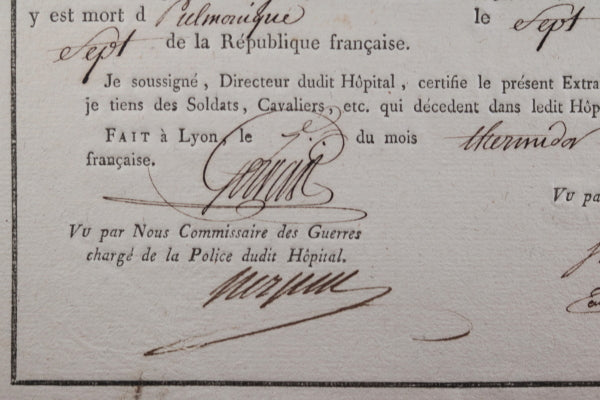 y est mort d Pulmonique le Sept
Sept de la République française.
Je soussigné, Directeur dudit Hôpital, certifie le présent Extra
je tiens des Soldats, Cavaliers, etc. qui décedent dans ledit Hôp
FAIT à Lyon, le 7e. du mois thermidor
française.
Vu pa
Vu par Nous Commissaire des Guerres
chargé de la Police dudit Hôpital.